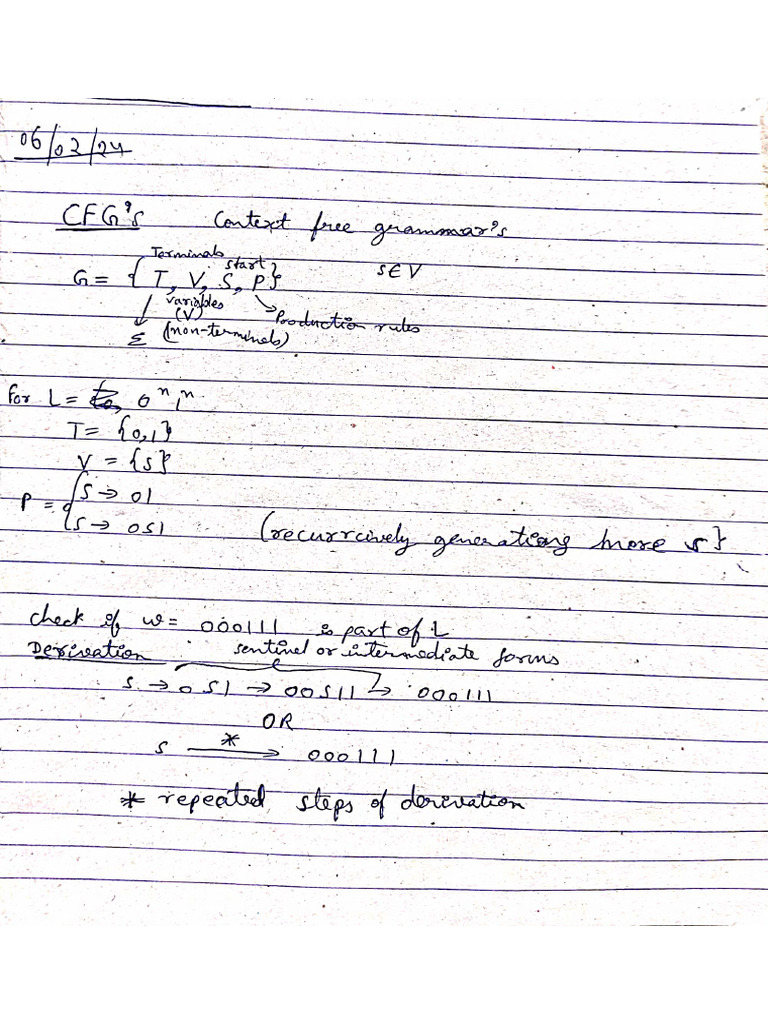 06/02/24
CFG's Context free grammar's
Terminals
start
G = { T, V, S, P} S∈V
variables
(V) Production rules
Σ (non-terminals)
For L = 0ⁿ1ⁿ
T = {0,1}
V = {S}
P = { S → 01
S → 0S1 (recurrcively generationg more s}
check if w = 000111 is part of L
Derivation sentinel or intermediate forms
S → 0S1 → 00S11 → 000111
OR
S —*→ 000111
* repeated steps of derivation